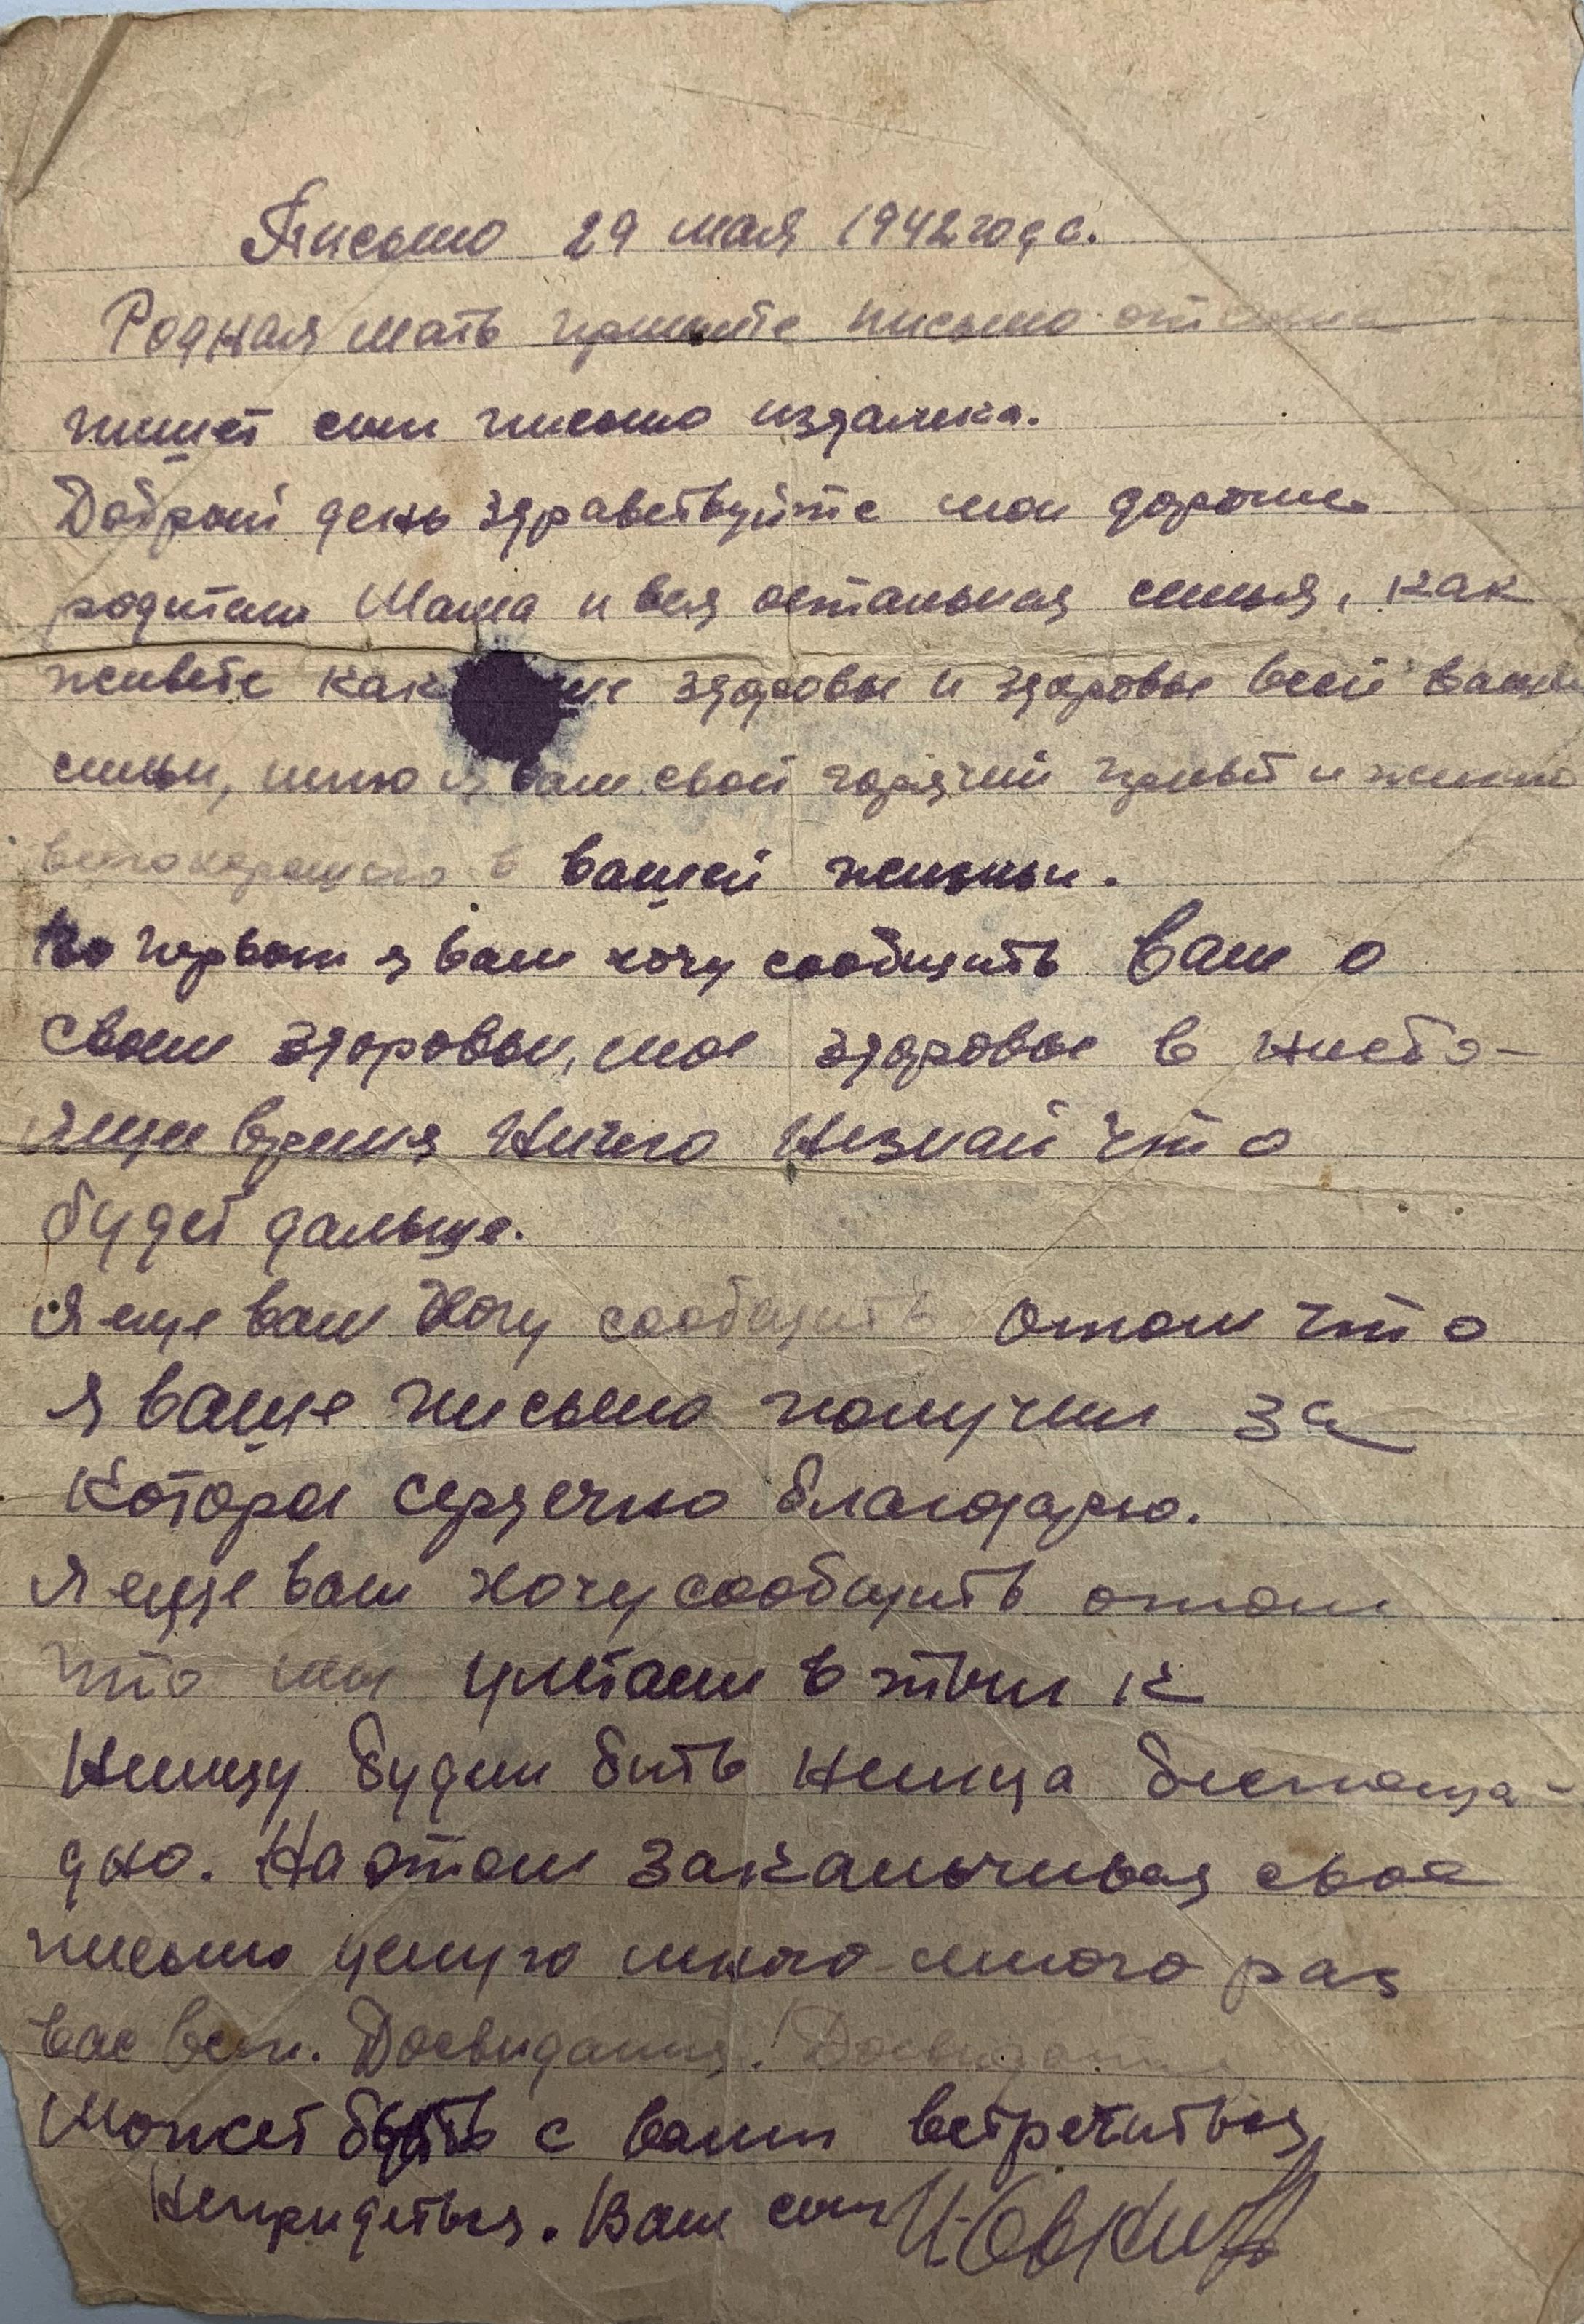 Письмо 29 мая 1942 года.
Родная мать примите письмо от сына
пишет сын письмо издалека.
Добрый день здравствуйте мои дорогие
родители Мама и вся остальная семья, как
живете как здоровье и здоровье всей вашей
семьи, шлю я вам свой горячий привет и желаю
всего хорошего в вашей жизньи.
Во первых я вам хочу сообщить Вам о
своем здоровьи, мое здоровье в насто-
ящее время Ничего Незнай что
будет дальше.
Я еще вам Хочу сообщить отом что
я ваше письмо получил за
Которое сердечно благодарю.
Я еще вам хочу сообщить отом
что мы к
Немцу будем бить немца беспоща-
дно. На этом заканьчиваю свое
письмо целую много-много раз
вас всех. Досвидания! Досвидания
Может быть с вами встретиться
Непридеться. Ваш сын